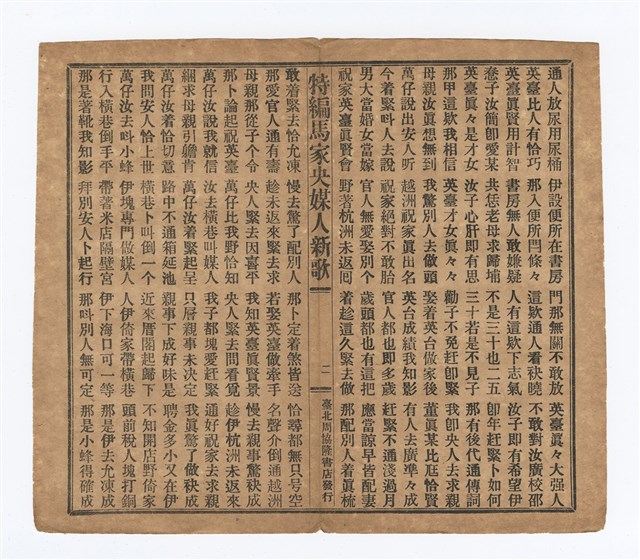 通人放尿用尿桶 伊設便所在書房 門那無關不敢放 英臺眞々大强人
英臺比人有恰巧 那入便所門條々 這欵通人看袂曉 不敢對汝廣校卲
英臺眞賢用計智 書房無人敢嫌疑 人有這欵下志氣 汝子即有希望伊
惷子汝簡即愛某 共恁老母求歸埔 不是三十也二五 即年赶緊卜如何
英臺眞々是才女 汝子心肝即有思 三十若是不見子 那有後代通傳詞
那甲這欵我相信 英臺才女眞々々 勸子不免赶即緊 我即央人去求親
母親汝眞想無到 我驚別人去做頭 娶着英台做家後 董眞某比庭恰賢
萬仔說出安人听 越洲祝家眞出名 英台成績我知影 有人去廣凖々成
今着緊呌人去說 祝家絕對不敢胎 官人都也即多歲 赶緊不通淺過月
男大當婚女當嫁 官人無愛娶別个 歲頭都也有這把 應當諒早皆配妻
祝家英臺眞賢會 野著杭洲未返囘 着趁這久緊去做 那配別人着眞梳
特編馬家央媒人新歌 二 臺北周協隆書店發行
敢着緊去恰允凍 慢去驚了配別人 那卜定着煞皆送 恰尋都無只号空
那愛官人通有壽 趁未返來緊去求 若娶英臺做牽手 名聲介倒通越洲
母親那從子个令 央人緊去因喜平 我知英臺眞賢景 慢去親事驚袂成
那卜論起祝英臺 萬仔比我野恰知 央人緊去問看覓 趁伊杭洲未返來
萬仔汝說我就信 汝去橫巷叫媒人 我子都塊愛赶緊 通好祝家去求親
綑求母親引膽肯 萬仔汝着緊起呈 只厝親事未决定 我眞驚了做袂成
萬仔汝着恰切意 路中不通箱延池 親事下成好味是 聘金多小又在伊
我問安人恰上世 橫巷卜叫倒一个 近來厝閣起歸下 不知開店野倚家
萬仔汝去呌小蜂 伊塊專門做媒人 人伊倚家帶橫巷 頭前稅人塊打銅
行入橫巷倒手平 帶著米店隔壁宮 伊下海口可一等 那是伊去允凍成
那是著靴我知影 拜別安人卜起行 那呌別人無可定 那是小蜂得確成